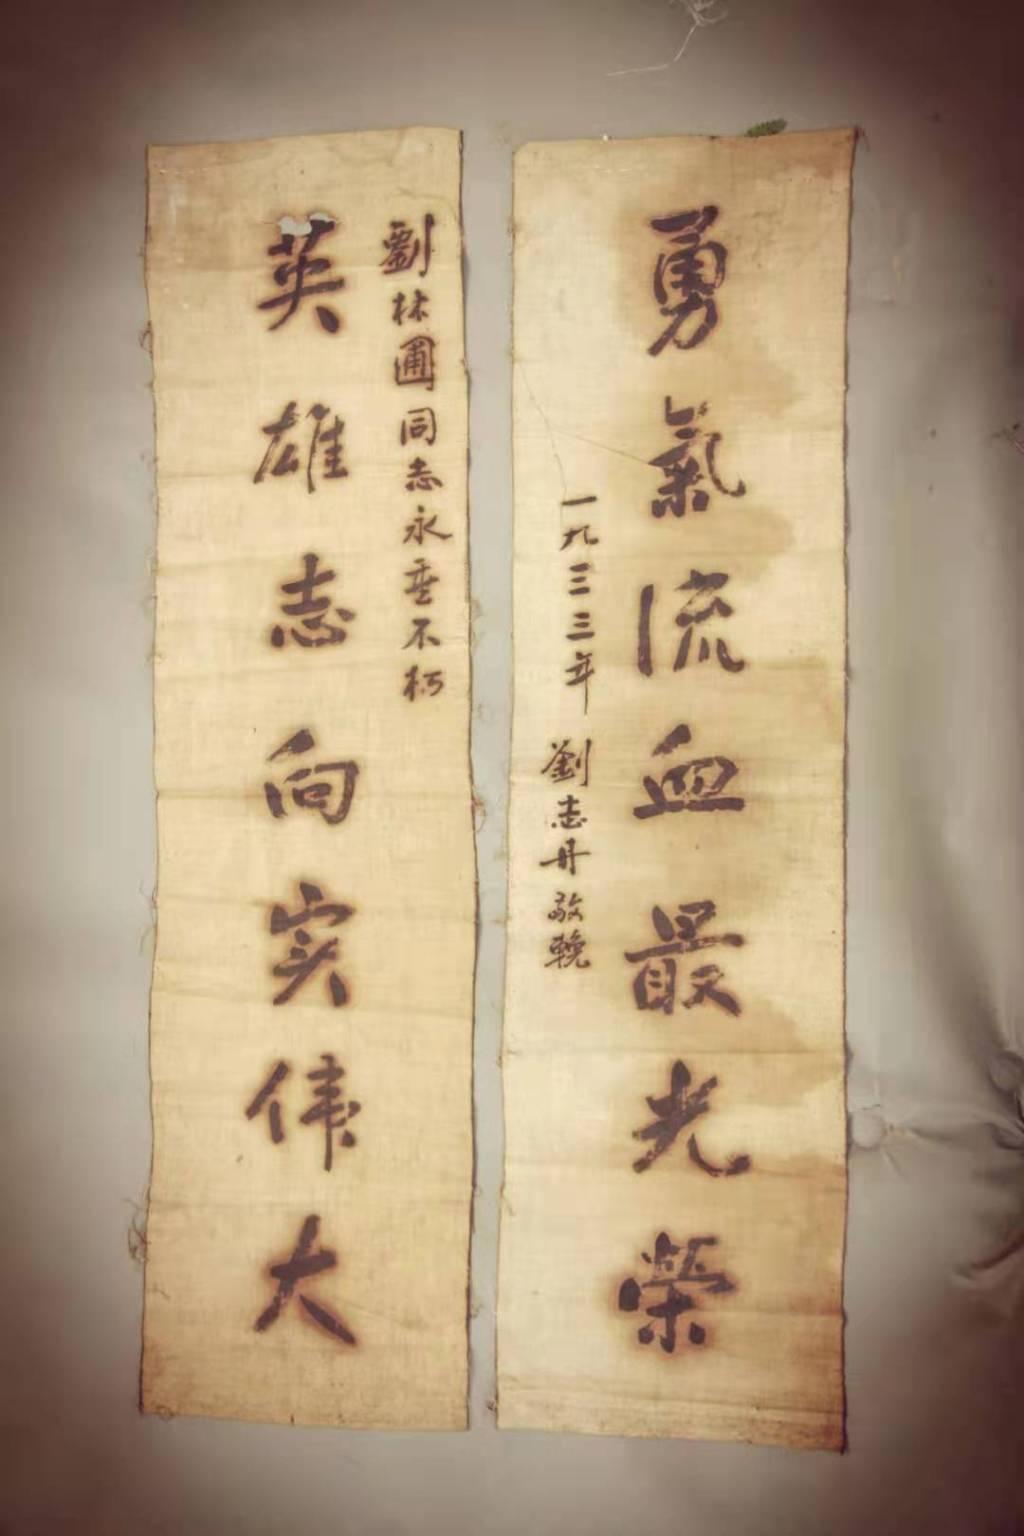 勇氣流血最光榮
一九三三年 劉志丹敬輓
劉林圃同志永垂不朽
英雄志向实伟大